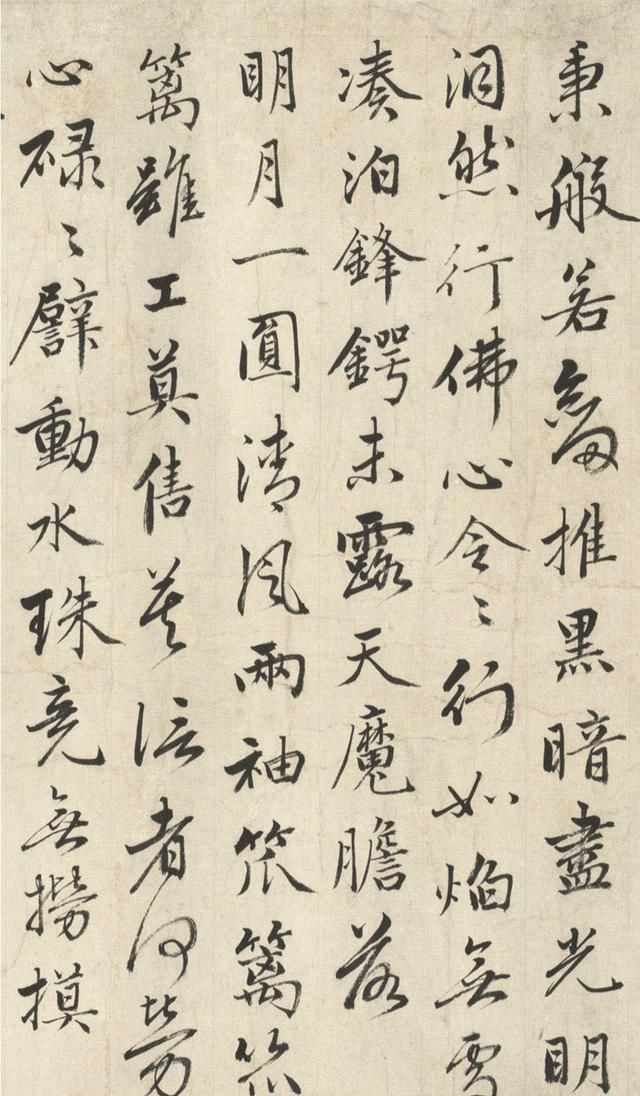 秉般若劍推黑暗盡光明
洞然行佛心令々行如焰無雪
凑泊鋒鍔未露天魔膽落
明月一圓清風兩袖笊篱笊
篱雖工莫售信者何勞
心碌々譬動水珠竟無撈摸